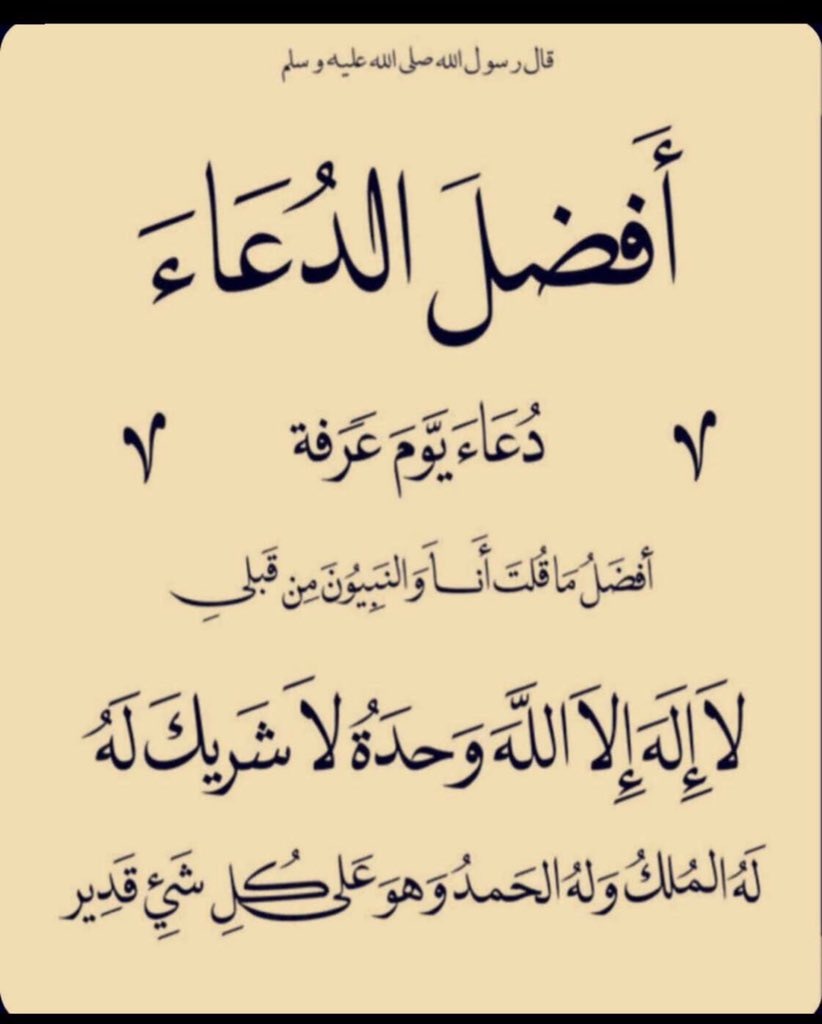 قال رسول الله صلى الله عليه وسلم
أَفضلَ الدُعَاءَ
دُعَاءَ يَّومَ عَرَفة
أفضَلُ مَا قُلتَ أَنَاَ وَالنَبِيُونَ مِن قَبلي
لاَ إِلَهَ إِلاَ اللَّهَ وَحدَةُ لاَ شَريكَ لَهُ
لَهُ المُلكُ وَلهُ الحَمدُ وَهوَ عَلى كُلِ شَيِّ قَدِير